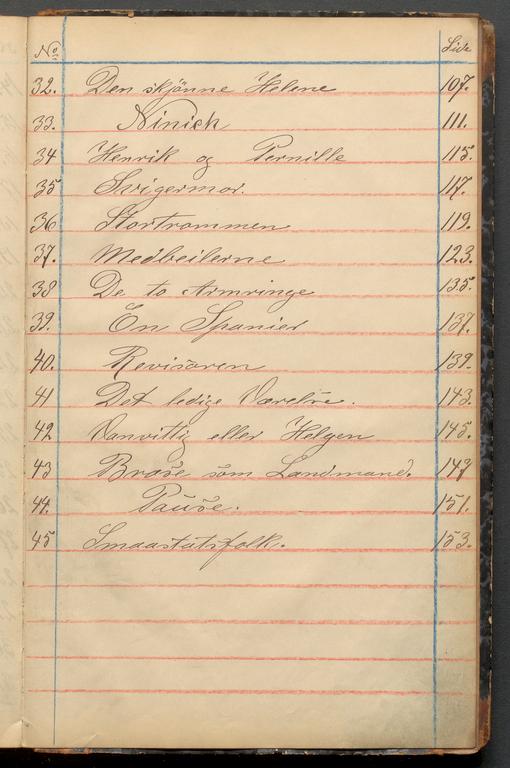 No Side
32. Den skjönne Helene 107.
33. Ninich 111.
34 Henrik og Pernille 115.
35 Svigermor. 117.
36 Stortrommen 119.
37. Medbeilerne 123.
38 De to Armringe 135.
39. En Spanier 137.
40. Revisoren 139.
41 Det ledige Værelse. 143.
42 Vanvittig eller Helgen 145.
43 Brase som Landmand. 147
44. Pause. 151.
45 Smaastatsfolk. 153.